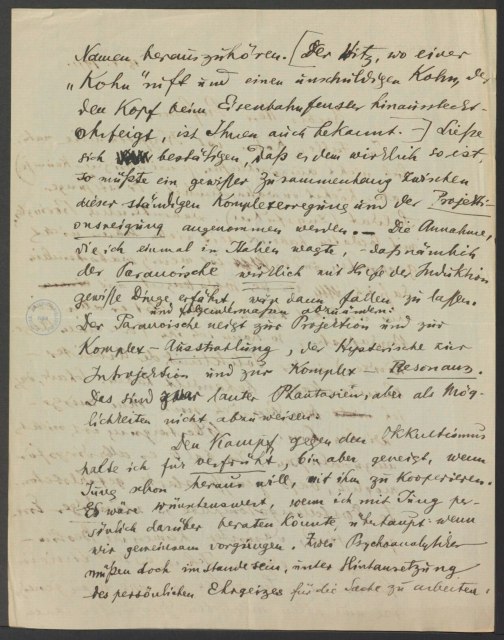 Namen, herauszuhören. [Der Witz, wo einer
„Kohn“ ruft und einen unschuldigen Kohn, der
den Kopf beim Eisenbahnfenster hinaussteckt –
ohrfeigt, ist Ihnen auch bekannt. –] Ließe
sich bestätigen, daß es dem wirklich so ist,
so müßte ein gewisser Zusammenhang zwischen
dieser ständigen Komplexerregung und der Projekti-
onsneigung angenommen werden. – Die Annahme,
die ich einmal in Italien wagte, – daß nämlich
der Paranoische wirklich mit Hilfe der Induktion
gewisse Dinge erfährt, wäre dann fallen zu lassen.
und folgendermaßen abzuändern:
Der Paranoische neigt zur Projektion und zur
Komplex-Ausstrahlung, der Hysterische zur
Introjektion und zur Komplex Resonanz.
Das sind zwar lauter Phantasien, aber als Mög-
lichkeiten nicht abzuweisen.
Den Kampf gegen den Okkultismus
halte ich für verfrüht, bin aber geneigt, wenn
Jung schon heraus will, mit ihm zu Kooperieren.
Es wäre wünschenswert, wenn ich mit Jung per-
sönlich darüber beraten könnte, überhaupt: wenn
wir gemeinsam vorgingen. Zwei Psychoanalytiker
müßen doch imstande sein, unter Hintansetzung
des persönlichen Ehrgeizes für die Sache zu arbeiten.